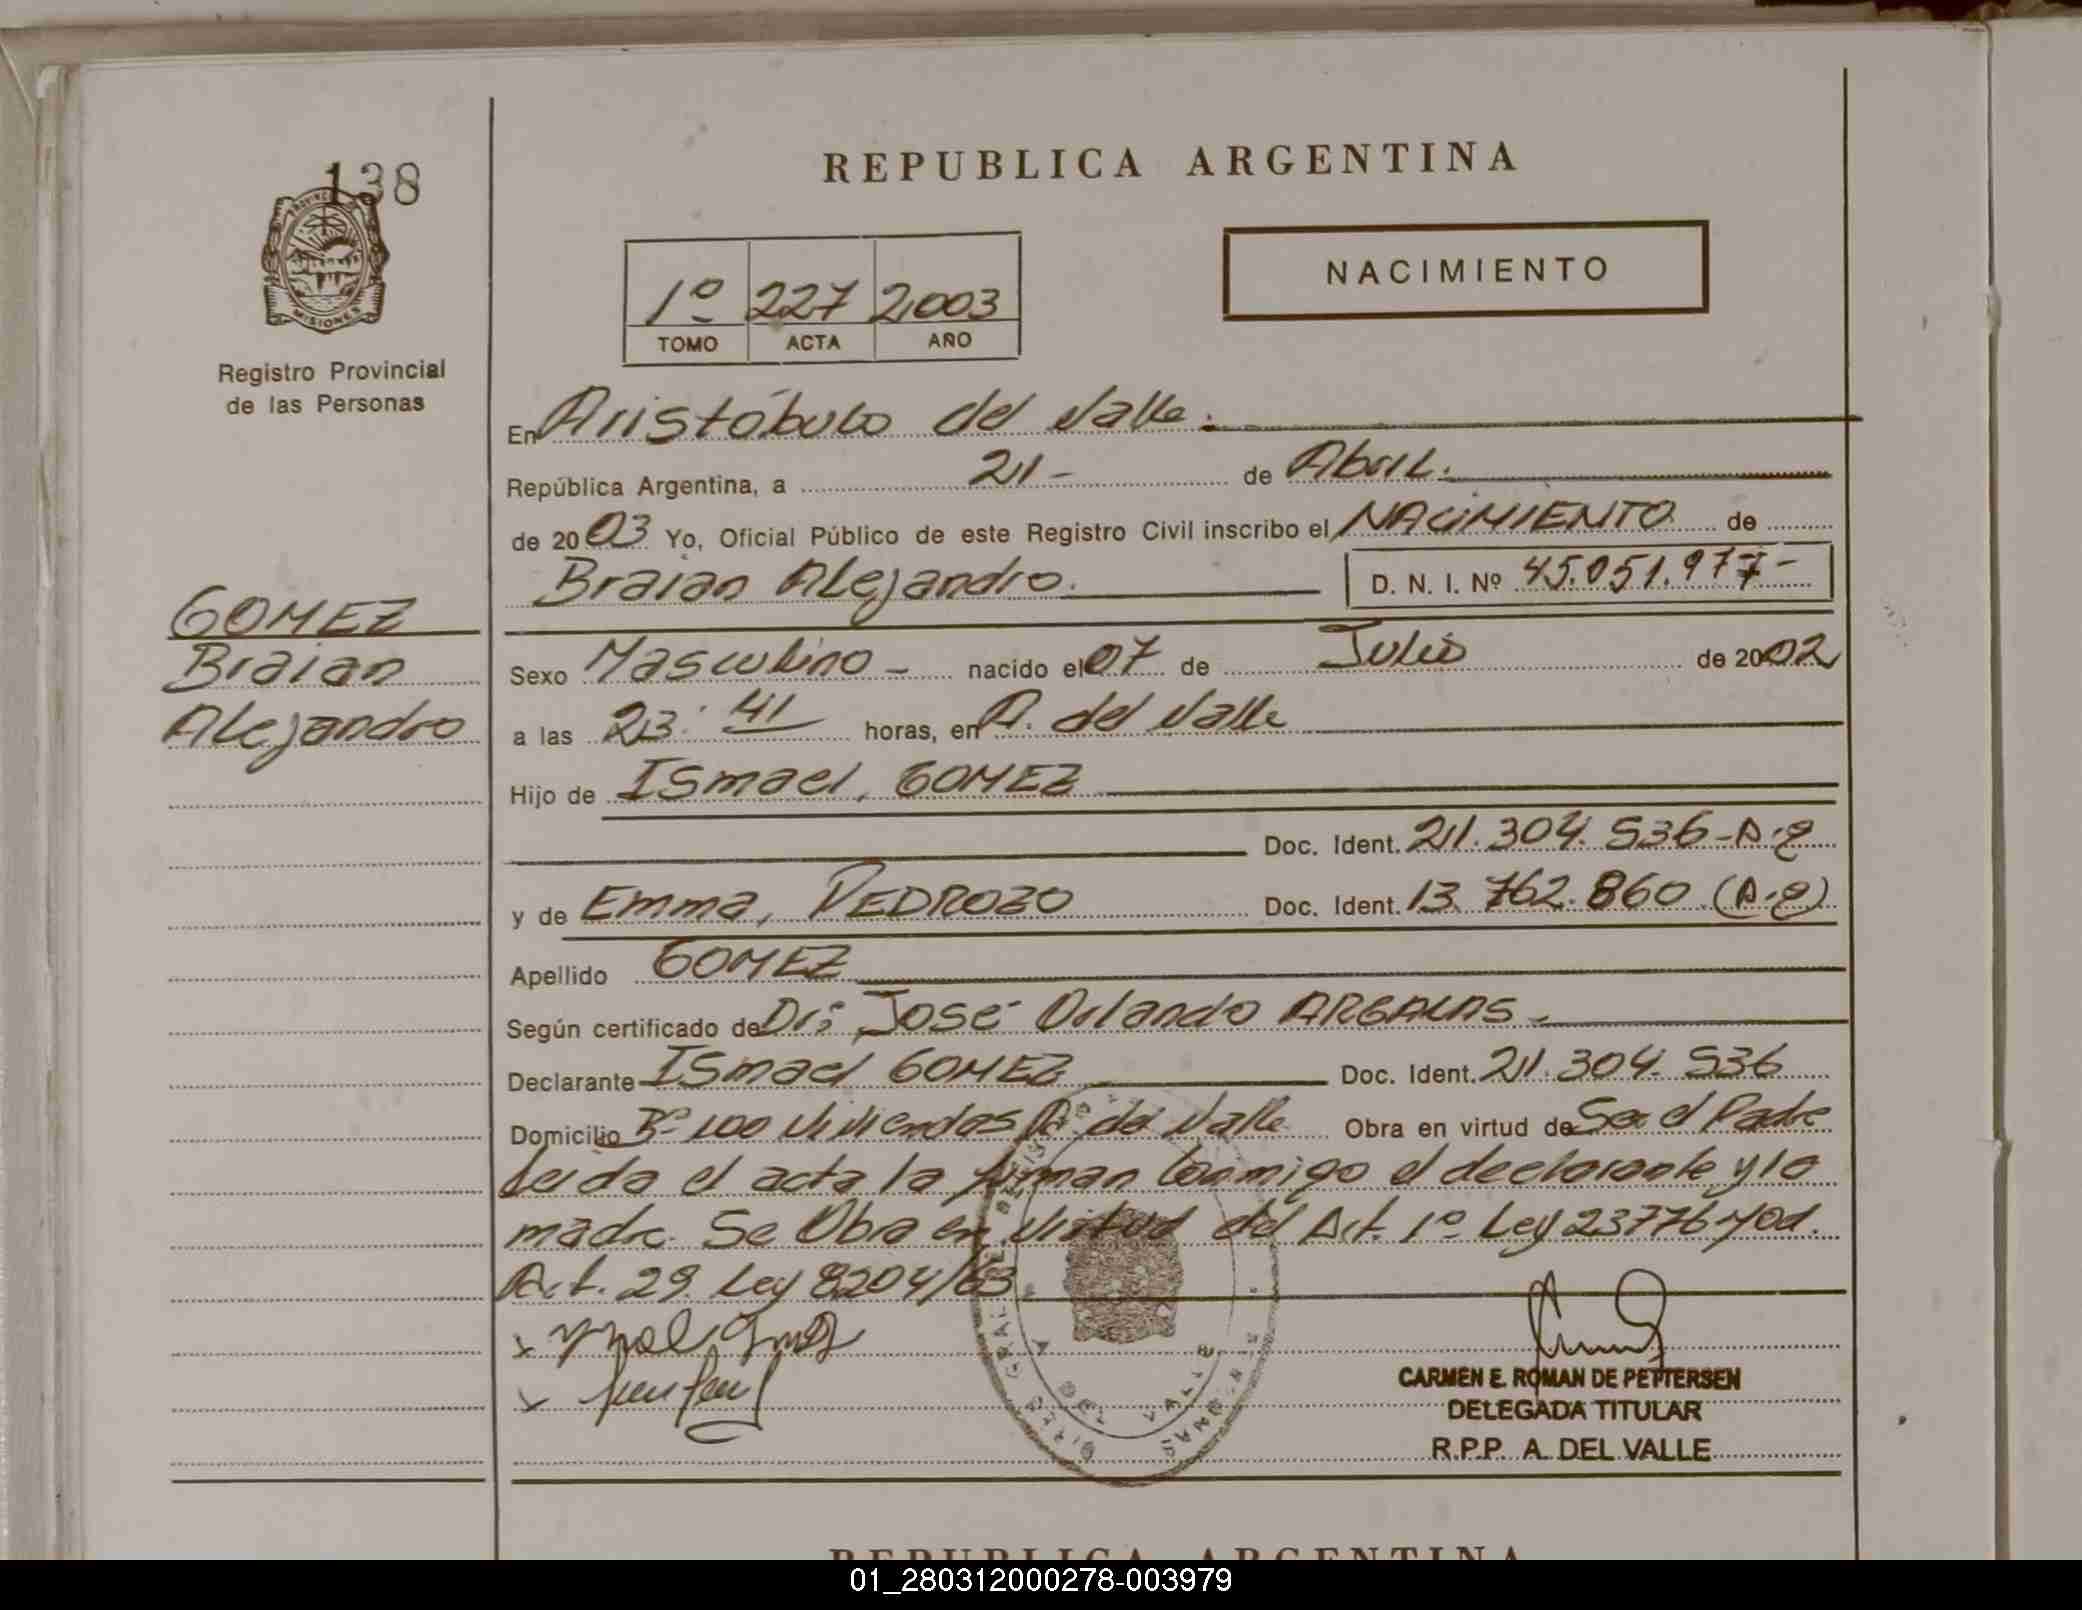 138
PROVINCIA DE
MISIONES
Registro Provincial
de las Personas
GOMEZ
Braian
Alejandro
REPUBLICA ARGENTINA
1º 227 2003
TOMO ACTA AÑO
NACIMIENTO
En Aristóbulo del Valle.
República Argentina, a 21 - de Abril.
de 2003 Yo, Oficial Público de este Registro Civil inscribo el NACIMIENTO de
Braian Alejandro. D. N. I. Nº 45.051.977-
Sexo Masculino - nacido el 07 de Julio de 2002
a las 23:41 horas, en A. del Valle
Hijo de Ismael, GOMEZ
Doc. Ident. 21.304.536-
y de Emma, PEDROZO Doc. Ident. 13.762.860
Apellido GOMEZ
Según certificado de Dr: José Orlando
Declarante Ismael GOMEZ Doc. Ident. 21.304.536
Domicilio Bº 100 Viviendas A. del Valle Obra en virtud de Ser el Padre
Leida el acta la firman conmigo el declarante y la
madre. Se Obra en virtud del Art. 1º Ley 23776
Art. 29. Ley 8204/63
CARMEN E. ROMAN DE PETTERSEN
DELEGADA TITULAR
R.P.P. A. DEL VALLE
A. DEL VALLE
REPUBLICA ARGENTINA
01_280312000278-003979